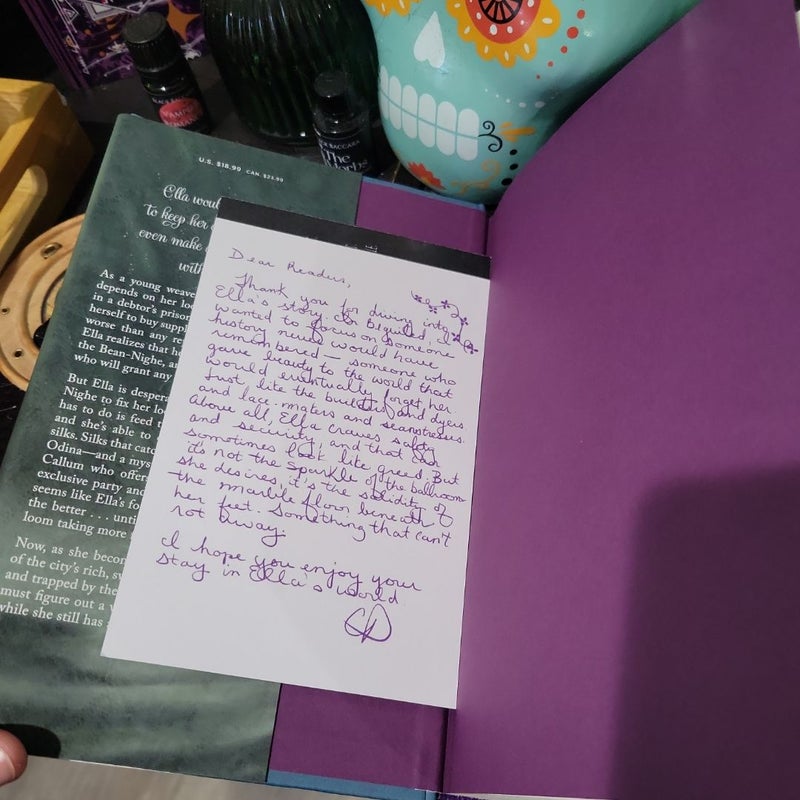 U.S. $18.99 CAN. $23.99
Ella woul
to keep her
even make
with
As a young weave
depends on her lo
in a debtor's prison
herself to buy suppl
worse than any re
Ella realizes that he
the Bean-Nighe, an
who will grant any
But Ella is despera
Nighe to fix her lo
has to do is feed t
and she's able to
silks. Silks that catc
Odina—and a mys
Callum who offer
exclusive party and
seems like Ella's fo
the better . . . unti
loom taking more
Now, as she becom
of the city's rich, sw
and trapped by the
must figure out a w
while she still has
Dear Readers,
Thank you for diving into
Ella's story in Beguiled, I
wanted to focus on someone
history never would have
remembered — someone who
gave beauty to the world that
would eventually forget her
Just like the and dyers
and lace-makers and seamstresses.
Above all, Ella craves safety
and security, and that can
sometimes look like greed. But
it's not the sparkle of the ballroom
she desires, it's the solidity of
the marble floor beneath
her feet. Something that can't
rot away.
I hope you enjoy your
stay in Ella's world
CD
BACCARA
The